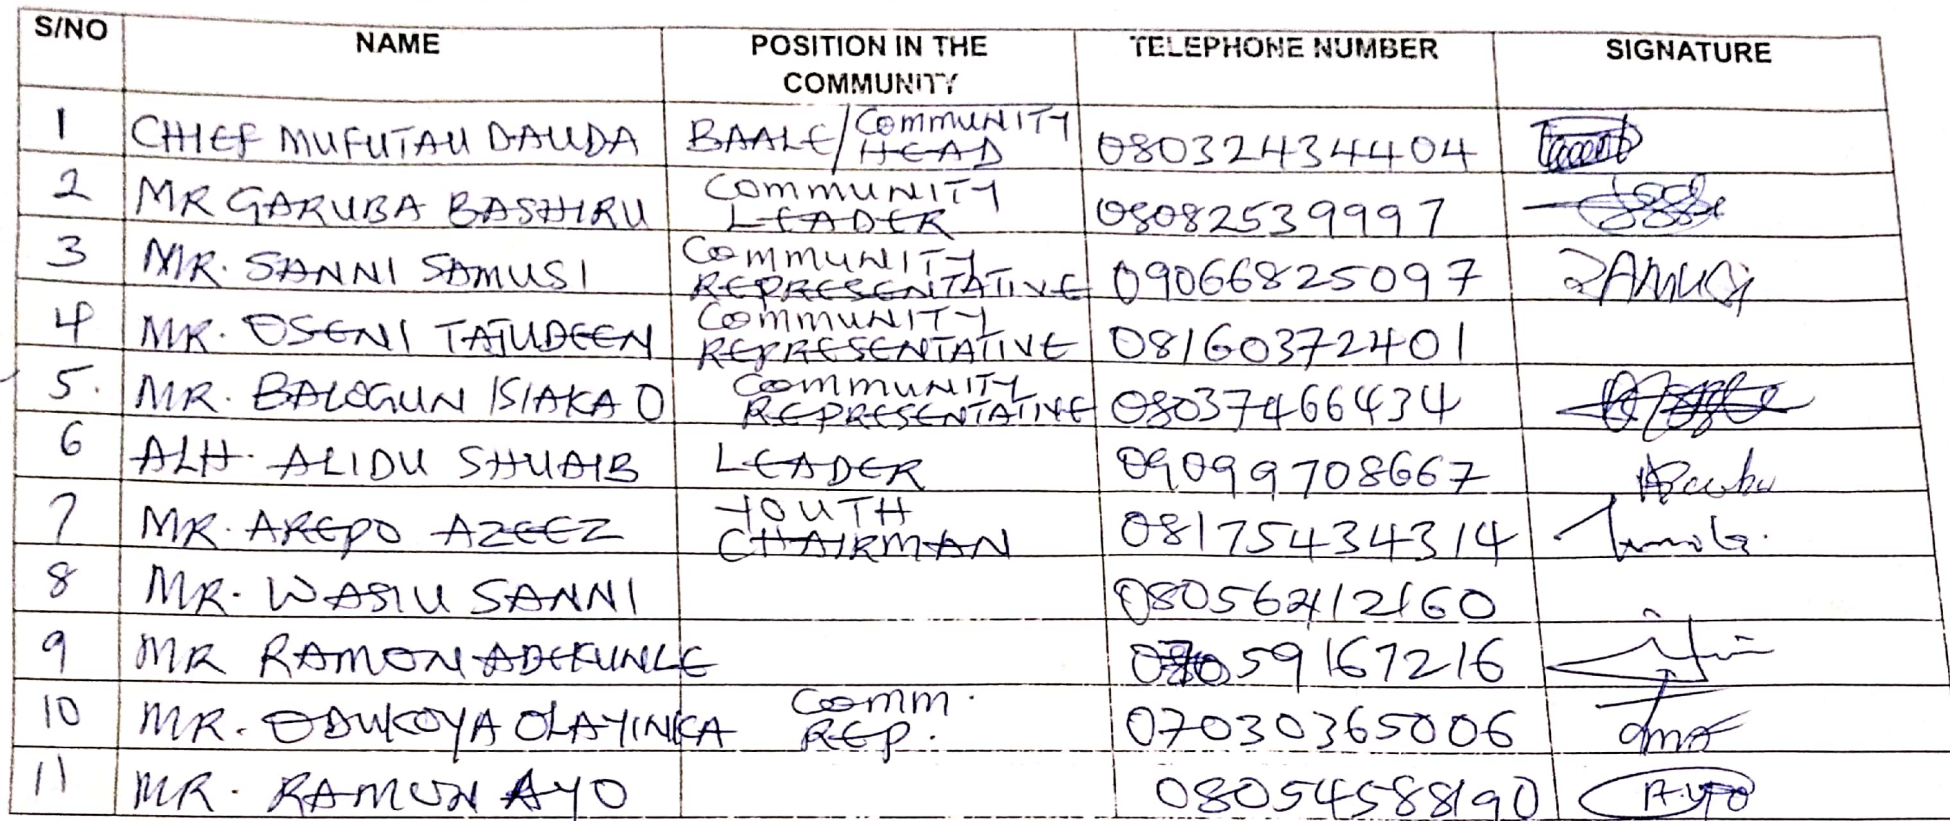 S/NO NAME POSITION IN THE COMMUNITY TELEPHONE NUMBER SIGNATURE
1 CHIEF MUFUTAU DAUDA BAALE/COMMUNITY HEAD 08032434404
2 MR GARUBA BASHIRU COMMUNITY LEADER 08082539997
3 MR. SANNI SAMUSI COMMUNITY REPRESENTATIVE 09066825097 SAMUSI
4 MR. OSENI TAJUDEEN COMMUNITY REPRESENTATIVE 08160372401
5. MR. BALOGUN ISIAKA O COMMUNITY REPRESENTATIVE 08037466434
6 ALH. ALIDU SHUAIB LEADER 09099708667
7 MR. AREPO AZEEZ YOUTH CHAIRMAN 08175434314
8 MR. WASIU SANNI 08056212160
9 MR RAMON ADEKUNLE
10 MR. ODUKOYA OLAYINKA COMM. REP. 07030365006
11 MR. RAMON AYO 08054588190 AYO